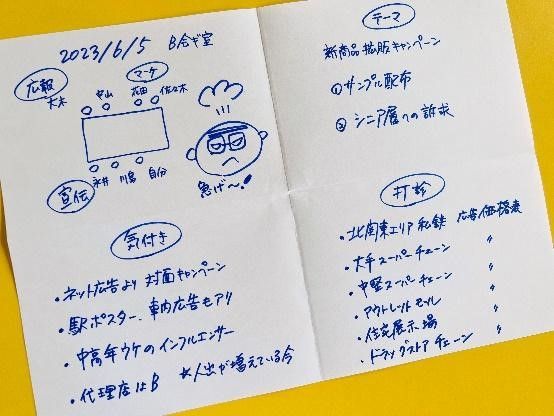 2023/6/5 B会ギ室
広報
マーケ
大木 中山 花田 佐々木
宣伝
永井 川島 自分
急げ〜!
気付き
・ネット広告より対面キャンペーン
・駅ポスター、車内広告もアリ
・中高年ウケのインフルエンサー
・代理店はB ＊人出が増えている今
テーマ
新商品拡販キャンペーン
①サンプル配布
②シニア層への訴求
打診
・北関東エリア私鉄 広告価格表
・大手スーパーチェーン 〃
・中軽スーパーチェーン 〃
・アウトレットモール 〃
・住宅展示場 〃
・ドラッグストアチェーン 〃